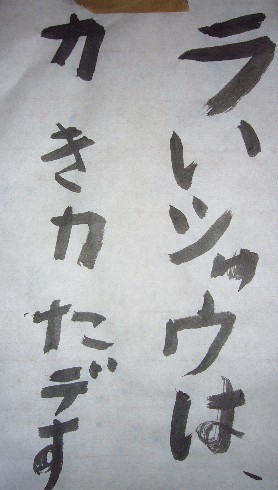 ライシュウは、
カきカたデす